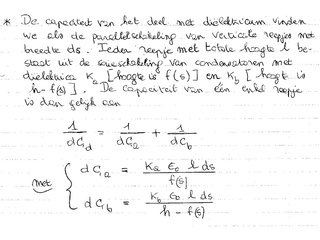 * De capaciteit van het deel met diëlektricum vinden
we als de parallelschakeling van verticale reepjes met
breedte ds. Ieder reepje met totale hoogte l be-
staat uit de serieschakeling van condensatoren met
diëlektrica Ka [hoogte is f(s)] en Kb [hoogte is
h-f(s)]. De capaciteit van één enkel reepje
is dan gelijk aan
1/dCd = 1/dCa + 1/dCb
met { dCa = Ka ε0 l ds / f(s)
dCb = Kb ε0 l ds / h - f(s)